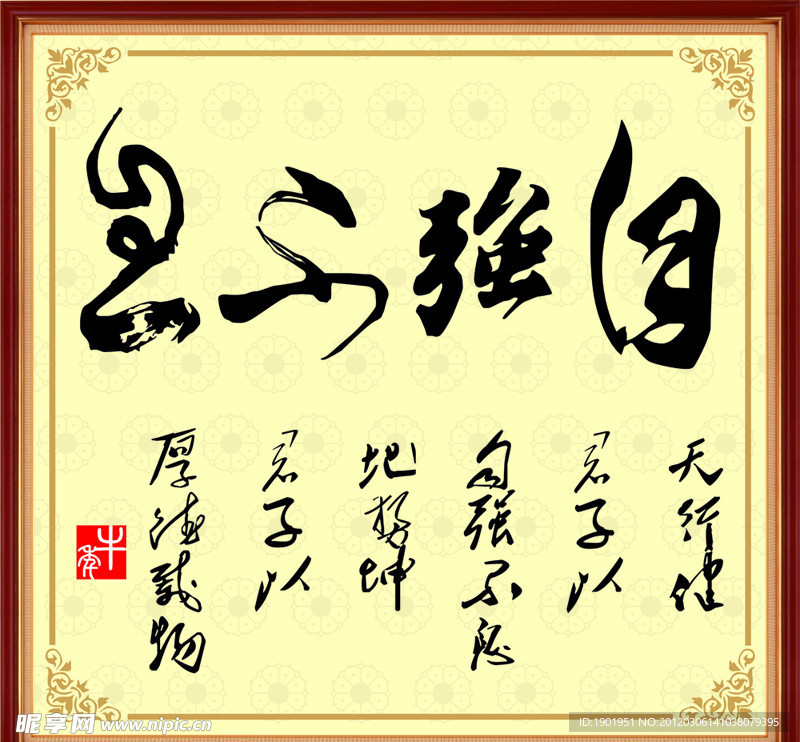 自強不息
天行健
君子以
自强不息
地势坤
君子以
厚德载物
昵享网 www.nipic.cn
ID:1901951 NO:20120306141038079395